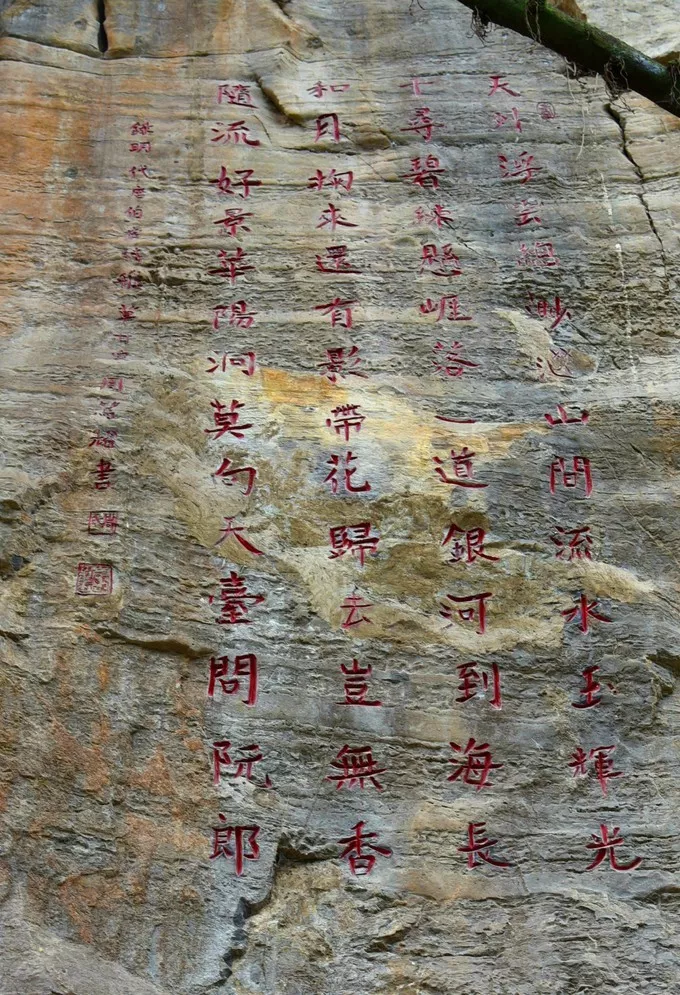 天浮雲總渺山間流水玉輝光
千尋碧練懸崖落一道銀河到海長
和月掬來還有影帶花歸去豈無香
隨流好景華陽洞莫向天臺問阮郎
錄明代伯詩周書